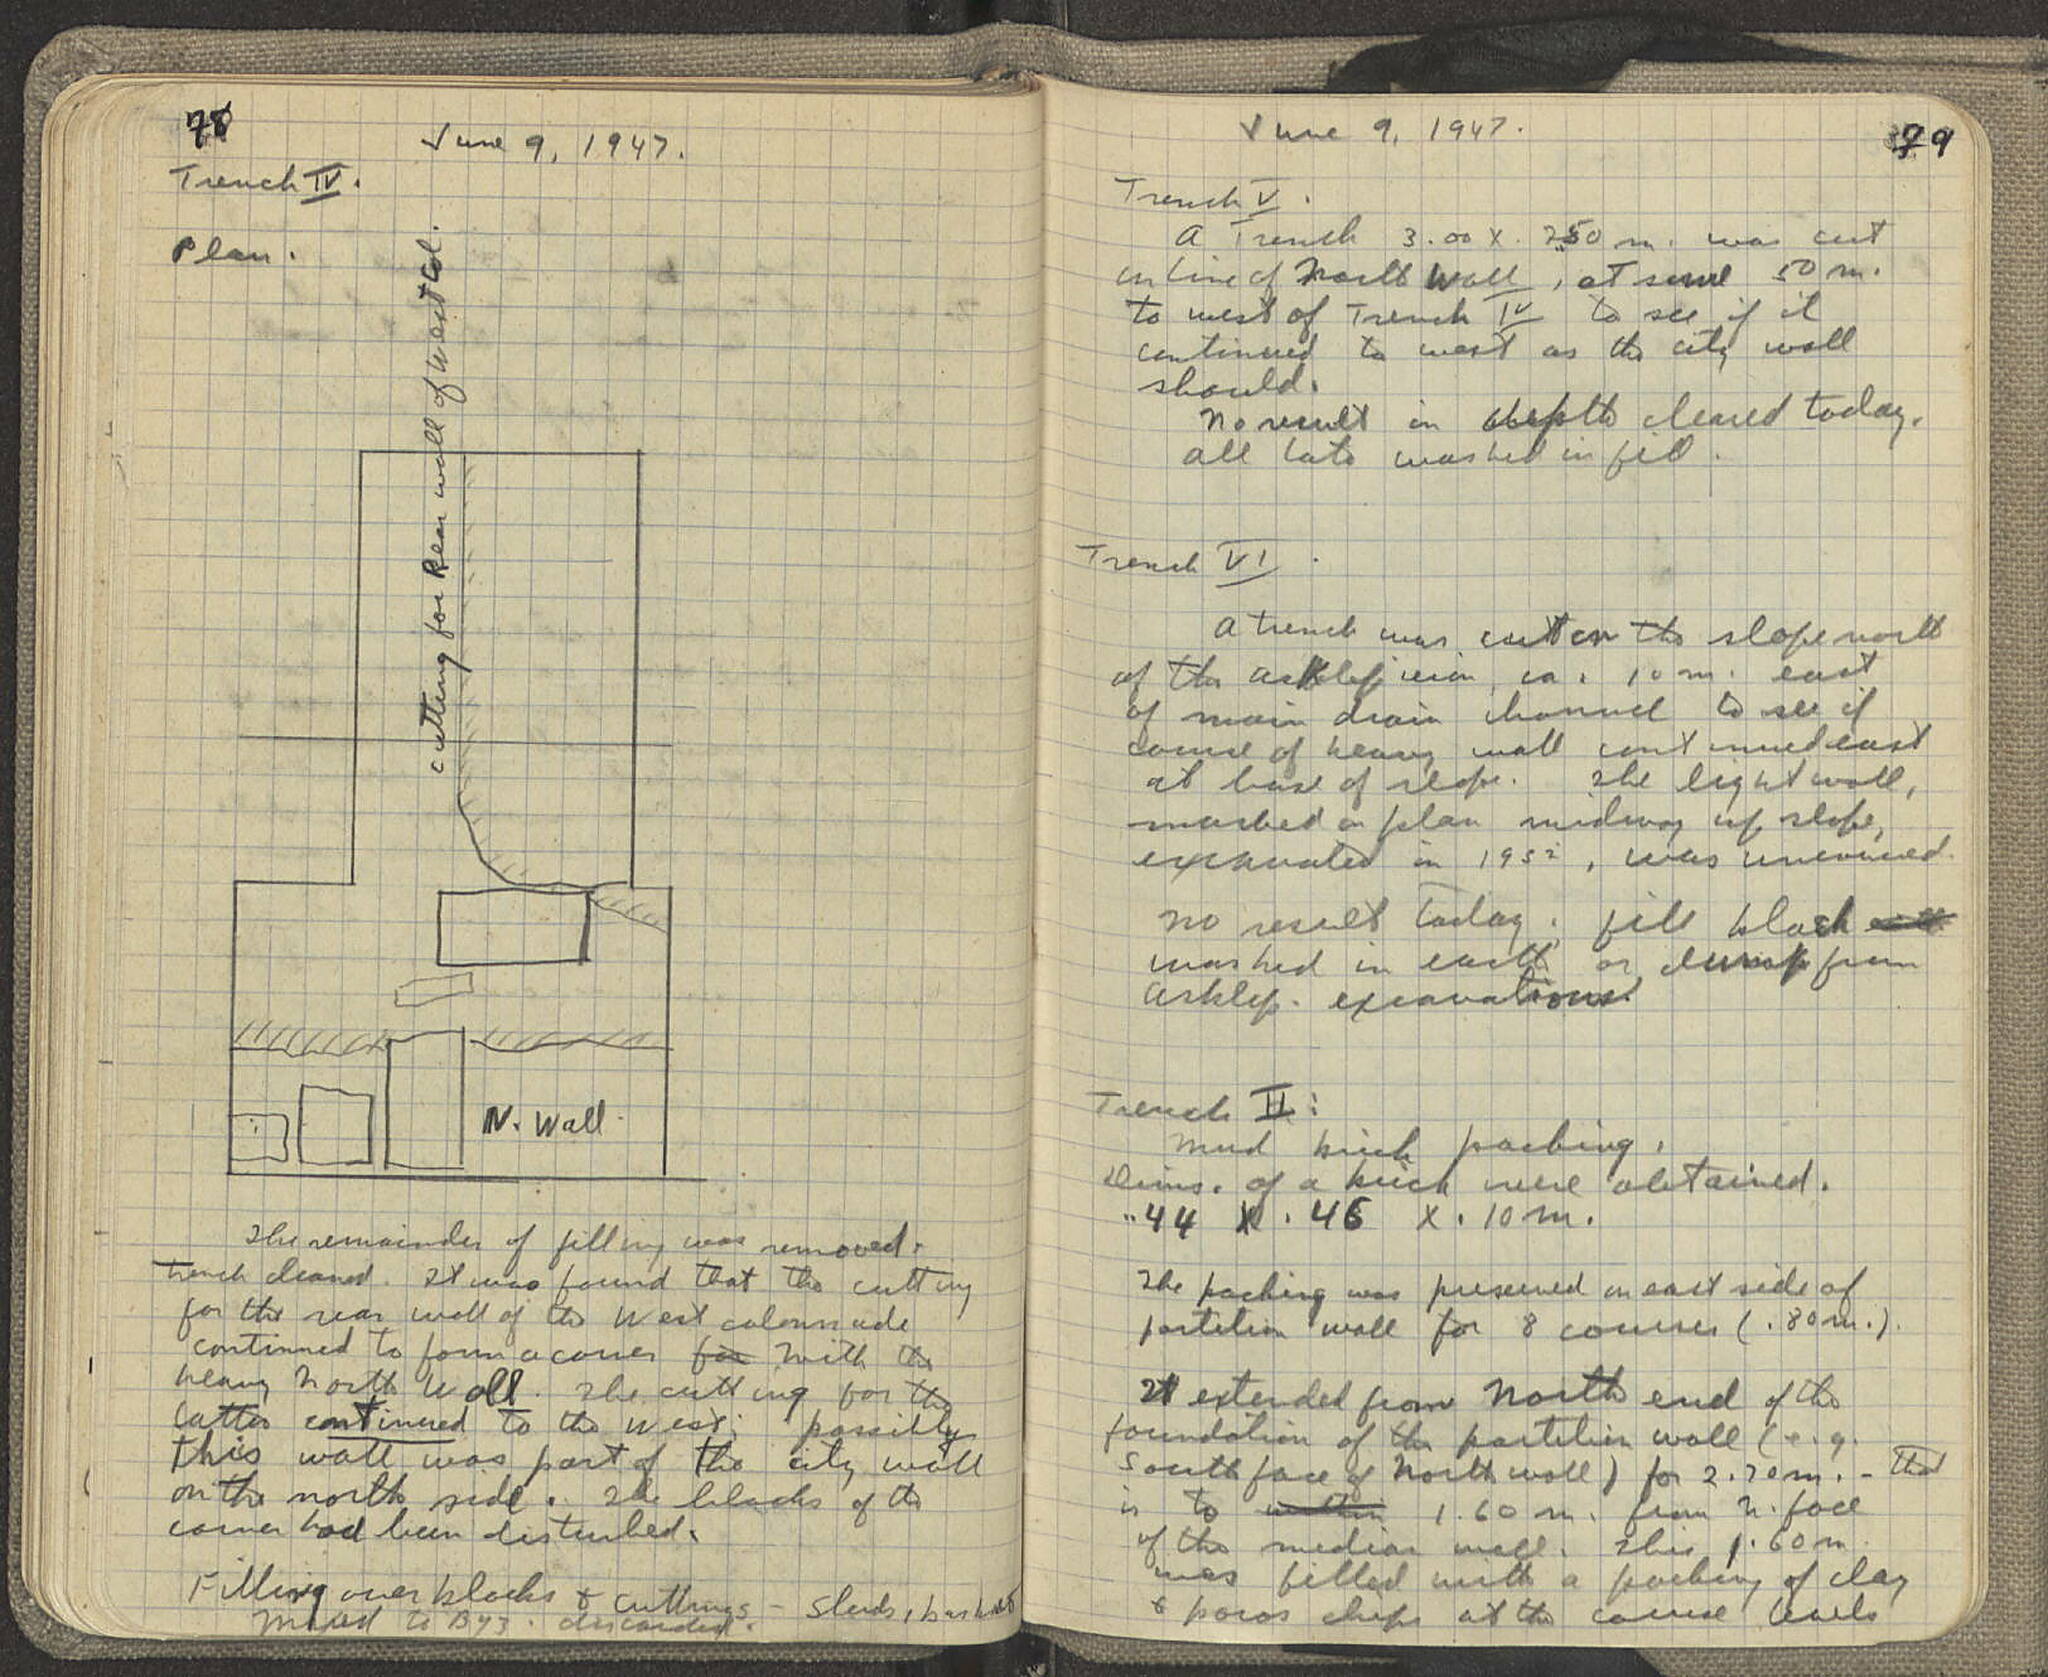 78
June 9, 1947.
Trench IV.
Plan.
cutting for Rear wall of West Col.
N. Wall.
The remainder of filling was removed.
trench cleaned. It was found that the cutting
for the rear wall of the West colonnade
continued to form a corner for with the
heavy North Wall. The cutting for the
latter continued to the west; possibly
this wall was part of the city wall
on the north side. The blocks of the
corner had been disturbed.
Filling over blocks & cuttings - sherds, 1 basket
mixed to Byz. discarded.
79
June 9, 1947.
Trench V.
A Trench 3.00 X. 2.50 m. was cut
in line of North Wall, at some 50 m.
to west of Trench IV to see if it
continued to west as the city wall
should.
No result in depth cleared today.
all late washed in fill.
Trench VI.
A trench was cut on the slope north
of the Asklepieion, ca. 10 m. east
of main drain channel to see if
course of heavy wall continued east
at base of slope. The light wall,
marked on plan midway up slope,
excavated in 1932, was uncovered.
No result today. fill black
washed in earth or dump from
Asklep. excavations.
Trench II:
Mud brick packing.
Dims. of a brick were obtained.
.44 X .46 X .10 m.
The packing was preserved on east side of
partition wall for 8 courses (.80 m.).
It extended from North end of the
foundation of the partition wall (e.g.
South face of North wall) for 2.70 m. - that
is to within 1.60 m. from N. face
of the median wall. This 1.60 m.
was filled with a packing of clay
& poros chips at the course levels